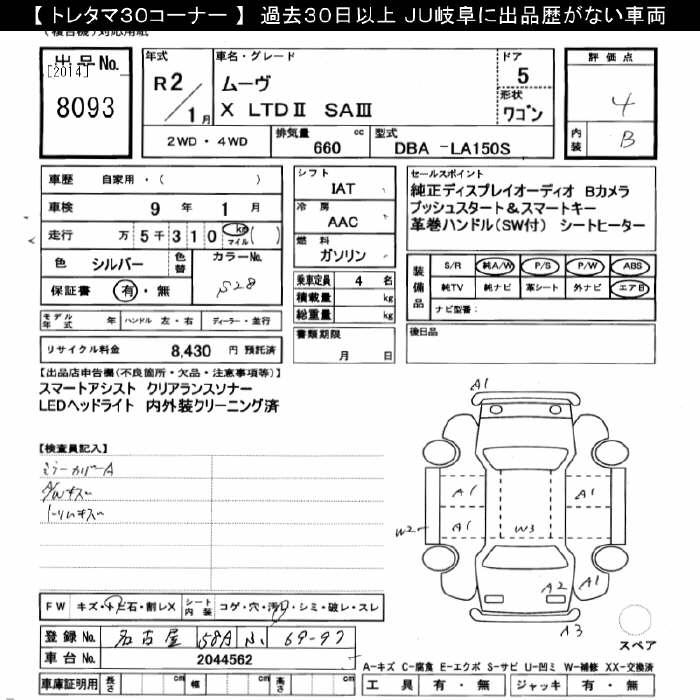 【 トレタマ30コーナー 】 過去30日以上 JU岐阜に出品歴がない車両
(複合機)対応用紙
出品No.
[2014]
8093
年式
R2/1月
車名・グレード
ムーヴ
X LTDⅡ SAⅢ
ドア
5
形状
ワゴン
評価点
4
内装
B
2WD・4WD
排気量
660 cc
型式
DBA -LA150S
車歴 自家用・( )
車検 9年 1月
走行 万5千310 km マイル( )
色 シルバー
色替
カラーNo.
S28
保証書 有・無
モデル年式 年 ハンドル 左・右 ディーラー・並行
リサイクル料金 8,430 円 預託済
シフト
IAT
冷房
AAC
燃料
ガソリン
乗車定員 4 名
積載量 kg
総重量 kg
書類期限
月 日
セールスポイント
純正ディスプレイオーディオ Bカメラ
プッシュスタート&スマートキー
革巻ハンドル(SW付) シートヒーター
装備品
S/R 純A/W P/S P/W ABS
純TV 純ナビ 革シート 外ナビ エアB
ナビ型番:
後日品
【出品店申告欄(不良箇所・欠品・注意事項等)】
スマートアシスト クリアランスソナー
LEDヘッドライト 内外装クリーニング済
【検査員記入】
ミラーカバーA
A/Wキズ
トリムキズ
A1
A1 A1
W2 A1 W3 A1
A2 A1
A3
スペア
FW キズ・トビ石・割レX シート内装 コゲ・穴・汚レ・シミ・破レ・スレ
登録No. 名古屋 58A い 69-97
車台No. 2044562
車庫証明用 長さ cm 幅 cm 高さ cm
A-キズ C-腐食 E-エクボ S-サビ U-凹ミ W-補修 XX-交換済
工具 有・無 ジャッキ 有・無